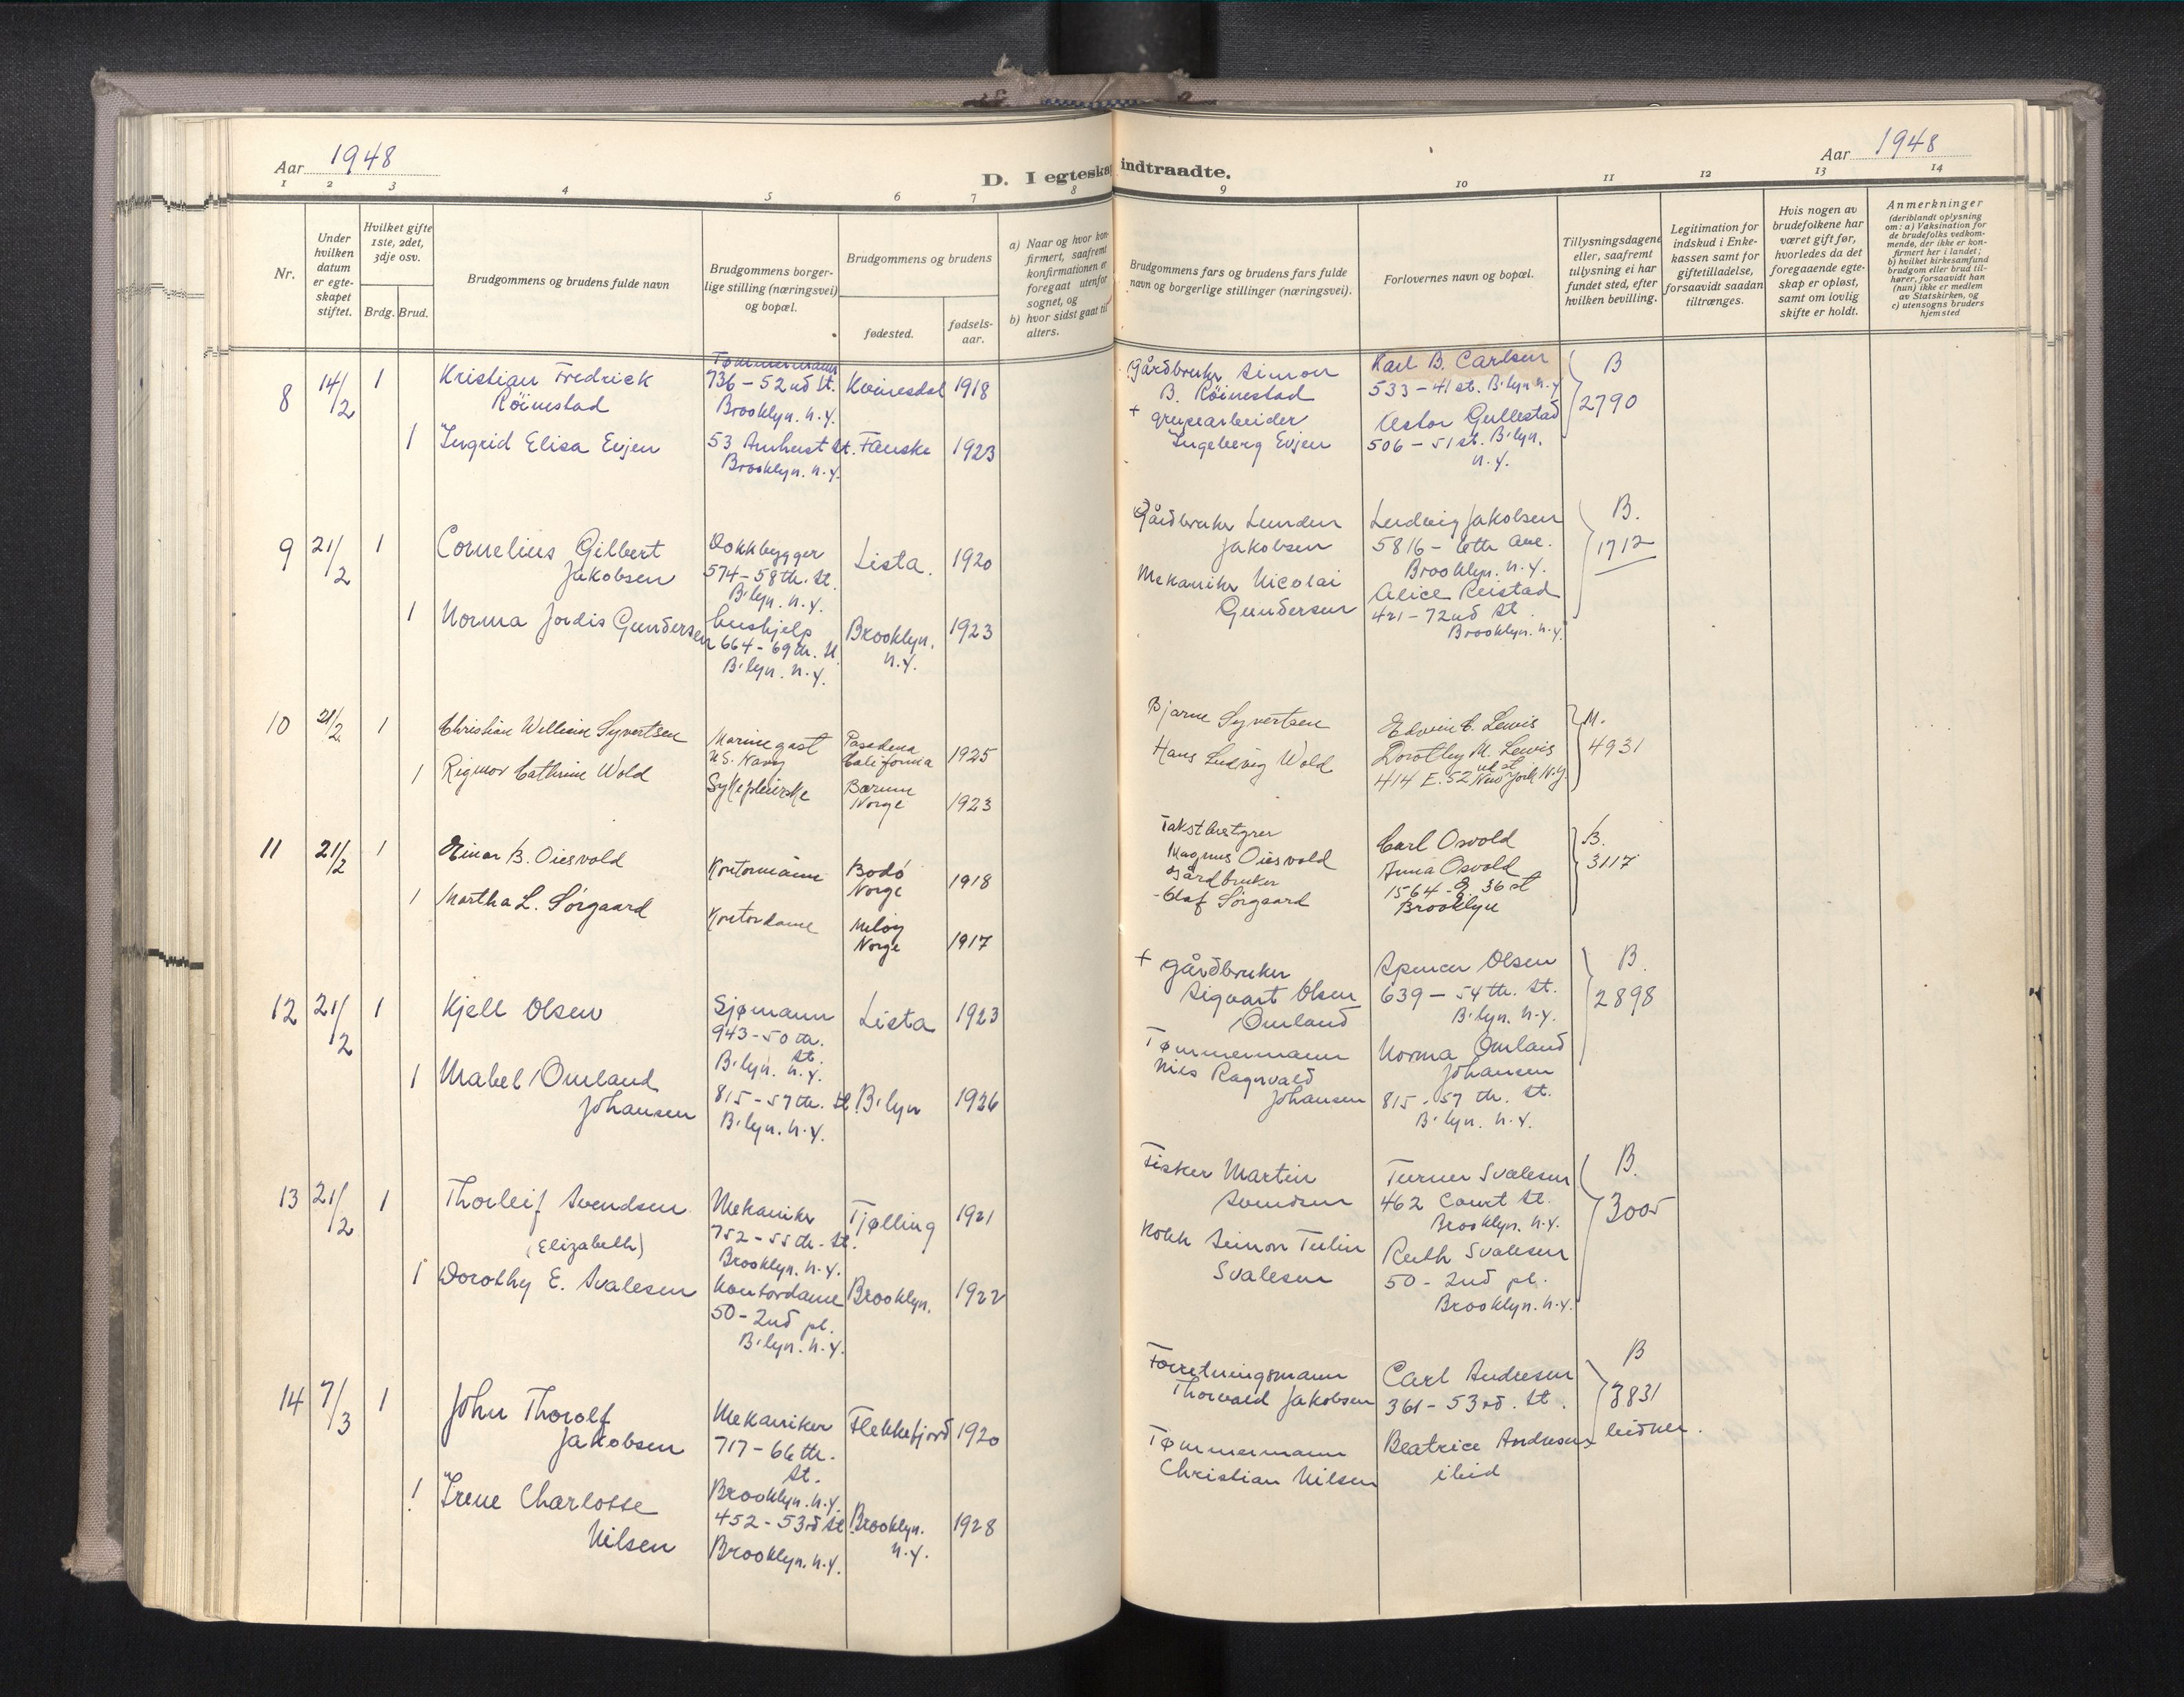 Aar 1948
D. I egteskap indtraadte.
Aar 1948
1 2 3 4 5 6 7 8 9 10 11 12 13 14
Nr.
Under
hvilken
datum
er egte-
skapet
stiftet.
Hvilket gifte
1ste, 2det,
3dje osv.
Brdg. Brud.
Brudgommens og brudens fulde navn
Brudgommens borger-
lige stilling (næringsvei)
og bopæl.
Brudgommens og brudens
fødested.
fødsels-
aar.
a) Naar og hvor kon-
firmert, saafremt
konfirmationen er
foregaat utenfor
sognet, og
b) hvor sidst gaat til
alters.
Brudgommens fars og brudens fars fulde
navn og borgerlige stillinger (næringsvei).
Forlovernes navn og bopæl.
Tillysningsdagene
eller, saafremt
tillysning ei har
fundet sted, efter
hvilken bevilling.
Legitimation for
indskud i Enke-
kassen samt for
giftetilladelse,
forsaavidt saadan
tiltrænges.
Hvis nogen av
brudefolkene har
været gift før,
hvorledes da det
foregaaende egte-
skap er opløst,
samt om lovlig
skifte er holdt.
Anmerkninger
(deriblandt oplysning
om: a) Vaksination for
de brudefolks vedkom-
mende, der ikke er kon-
firmert her i landet;
b) hvilket kirkesamfund
brudgom eller brud til-
hører, forsaavidt han
(hun) ikke er medlem
av Statskirken, og
c) utensogns bruders
hjemsted
8 14/2 1
Kristian Fredrick
Röinestad
Tømmermann
736 - 52nd St.
Brooklyn. N.Y.
Kvinesdal 1918
Gårdbruker Simon
B. Röinestad
Karl B. Carlsen
533 - 41 st. B'lyn N.Y
B
2790
1 Ingrid Elisa Evjen
53 Amherst St.
Brooklyn. N.Y.
Fauske 1923
+ gruvearbeider
Ingeberg Evjen
Gullestad
506 - 51 st. B'lyn.
N.Y.
9 21/2 1
Cornelius Gilbert
Jakobsen
Dokkbygger
574 - 58th. St.
B'lyn. N.Y.
Lista. 1920
Gårdbruker Lunden
Jakobsen
Ludvig Jakobsen
5816 - 6th Ave.
Brooklyn. N.Y.
B.
1712
1 Norma Jordis Gundersen
hushjelp
664 - 69th. St.
B'lyn. N.Y.
Brooklyn.
N.Y.
1923
Mekaniker Nicolai
Gundersen
Alice Reistad
421 - 72nd St.
Brooklyn. N.Y.
10 21/2 1
Christian William Syvertsen
Marinegast
U.S. Navy
Pasadena
California
1925
Bjarne Syvertsen
Edwin C. Lewis
M.
4931
1 Rigmor Cathrine Wold
Sykepleierske
Bærum
Norge
1923
Hans Ludvig Wold
Dorothy M. Lewis
414 E. 52nd st New York N.Y.
11 21/2 1
Einar B. Oiesvold
Kontormann
Bodø
Norge
1918
Magnus Oiesvold
Carl Osvold
B.
3117
1 Martha L. Sørgaard
Kontordame
Meløy
Norge
1917
Gårdbruker
Olaf Sørgaard
Anna Osvold
1564 - E. 36 st
Brooklyn
12 21/2 1
Kjell Olsen
Sjømann
943 - 50th.
St.
B'lyn. N.Y.
Lista 1923
+ gårdbruker
Sigvart Olsen
Omland
Spencer Olsen
639 - 54th. St.
B'lyn. N.Y.
B.
2898
1 Mabel Omland
Johansen
815 - 57th. St.
B'lyn. N.Y.
B'lyn 1926
Tømmermann
Nils Ragnvald
Johansen
Norma Omland
Johansen
815 - 57 th. St.
B'lyn. N.Y.
13 21/2 1
Thorleif Svendsen
Mekaniker
752 - 55th - St.
Brooklyn. N.Y.
Tjølling 1921
Fisker Martin
Svendsen
Turner Svalesen
462 Court St.
Brooklyn. N.Y.
B.
3005
(Elizabeth)
1 Dorothy E. Svalesen
Kontordame
50 - 2nd pl.
B'lyn. N.Y.
Brooklyn. 1922
Kokk Simon Tulin
Svalesen
Ruth Svalesen
50 - 2nd pl.
Brooklyn. N.Y.
14 7/3 1
John Thorolf
Jakobsen
Mekaniker
717 - 66th.
St.
Brooklyn. N.Y.
Flekkefjord 1920
Forretningsmann
Thorvald Jakobsen
Carl Andresen
361 - 53rd. St.
B
3831
1 Irene Charlotte
Nilsen
452 - 53rd St
Brooklyn. N.Y.
Brooklyn.
N.Y.
1928
Tømmermann
Christian Nilsen
Beatrice Andresen
ibid